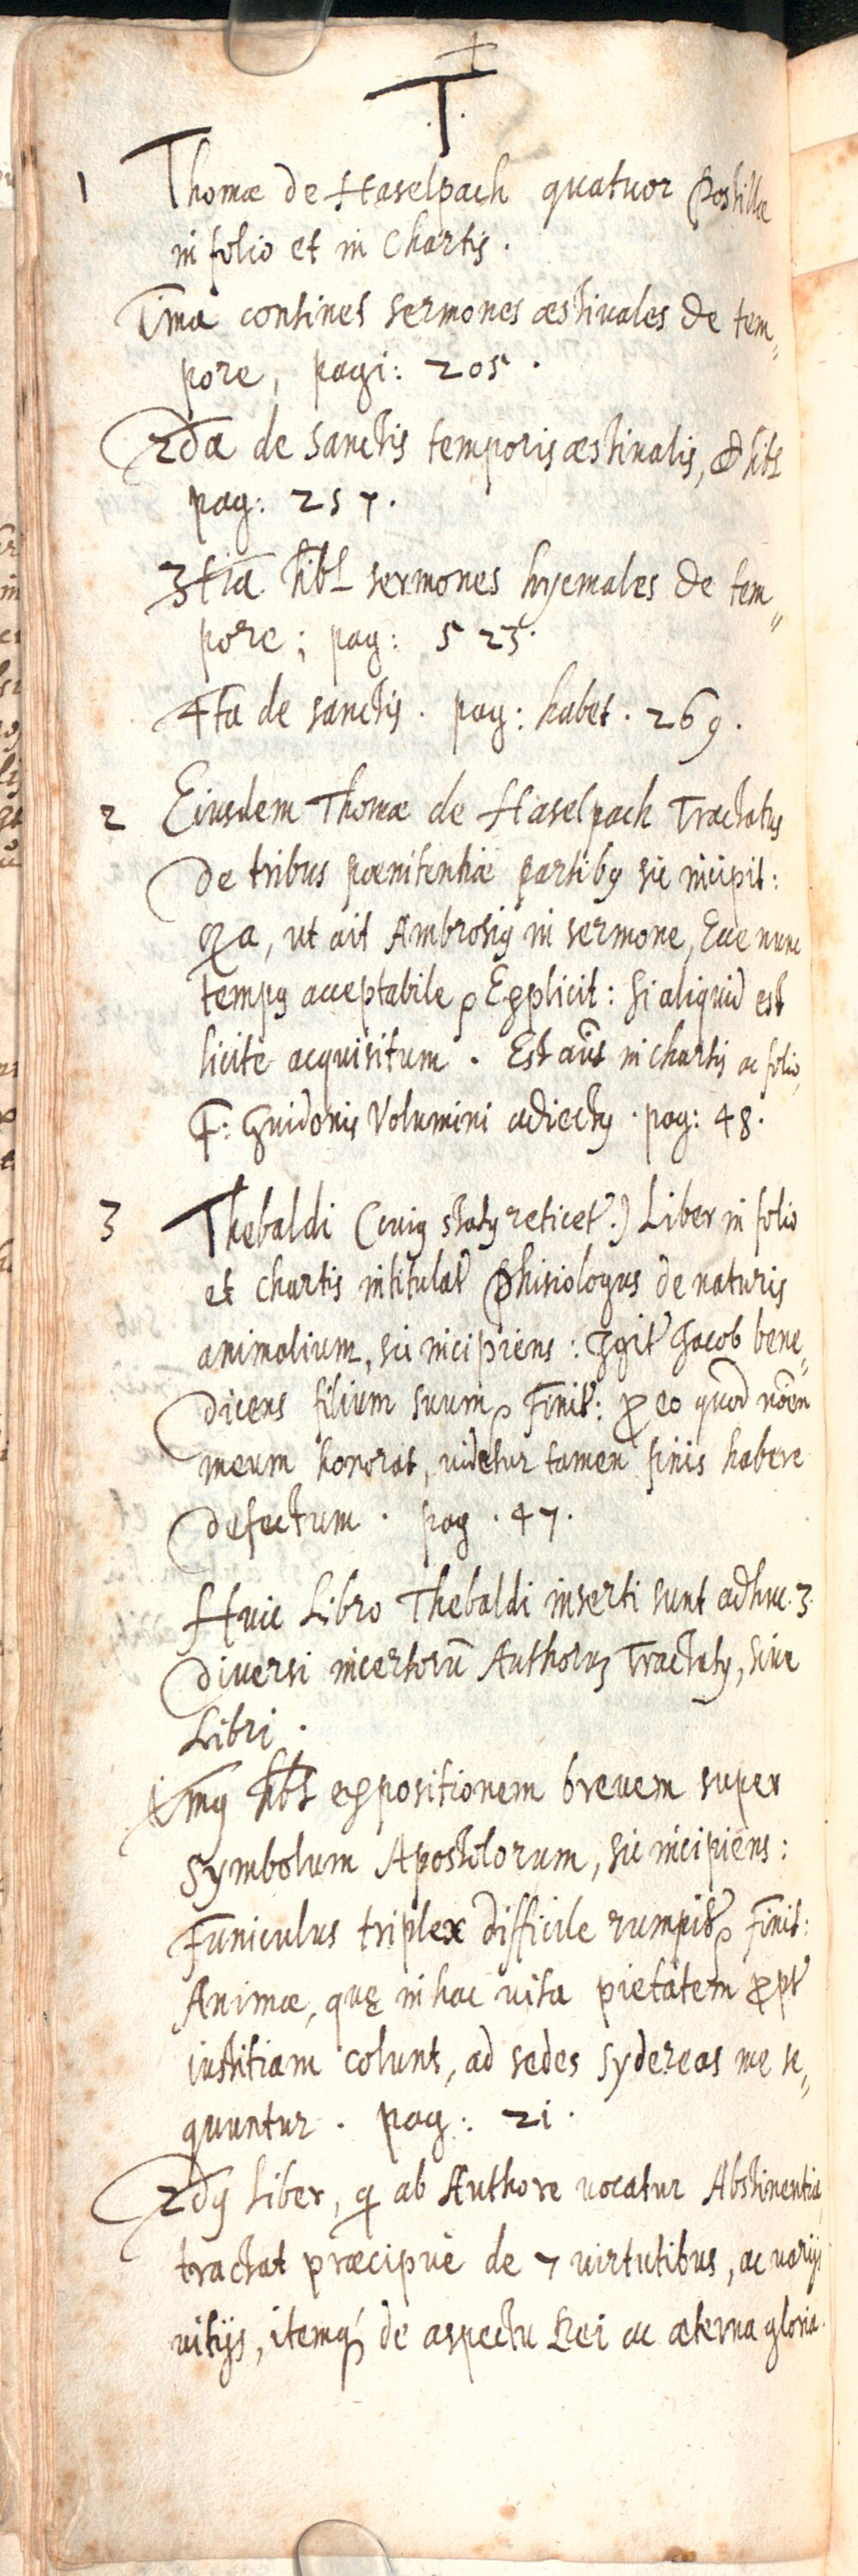 T
1 Thomæ de Haselpach quatuor Postillæ
in folio et in Chartis.
1ma continet sermones æstiuales de tem„
pore, pagi: 205.
2da de Sanctis temporis æstiualis, & hět
pag: 257.
3tia hět sermones hyemales de tem„
pore; pag: 523.
4ta de sanctis. pag: habet. 269.
2 Eiusdem Thomæ de Haselpach Tractatus
de tribus pœnitentiæ partibꝰ sic incipit:
Qa, ut ait Ambrosiꝰ in sermone, Ecce nunc
tempꝰ acceptabile ꝛ Explicit: Si aliquid est
licite acquisitum. Est aũt in chartis ac folio,
F: Guidonis Volumini adiectꝰ. pag: 48.
3 Thebaldi (cuiꝰ statꝰ reticet᷑.) Liber in folio
et chartis intitulat᷑ Phisiologus de naturis
animalium, sic incipiens: Igit᷑ Jacob bene„
dicens filium suum ꝛ Finit: ꝓ eo quod nõen
meum honorat, uidetur tamen finis habere
defectum. pag. 47.
Huic Libro Thebaldi inserti sunt adhuc. 3.
diuersi incertorũ Authoruꝫ Tractatꝰ, siue
Libri.
1mꝰ hět expositionem breuem super
Symbolum Apostolorum, sic incipiens:
Funiculus triplex difficile rumpit᷑ ꝛ Finit:
Animæ, quę in hac uita pietatem ꝓpt᷑
iustitiam colunt, ad sedes sydereas me se„
quuntur. pag: 21.
2dꝰ Liber, q ab Authore uocatur Abstinentia,
tractat præcipuè de 7 uirtutibus, ac uarijs
uitijs, itemq́ꝫ de aspectu Dei ac æterna gloria.